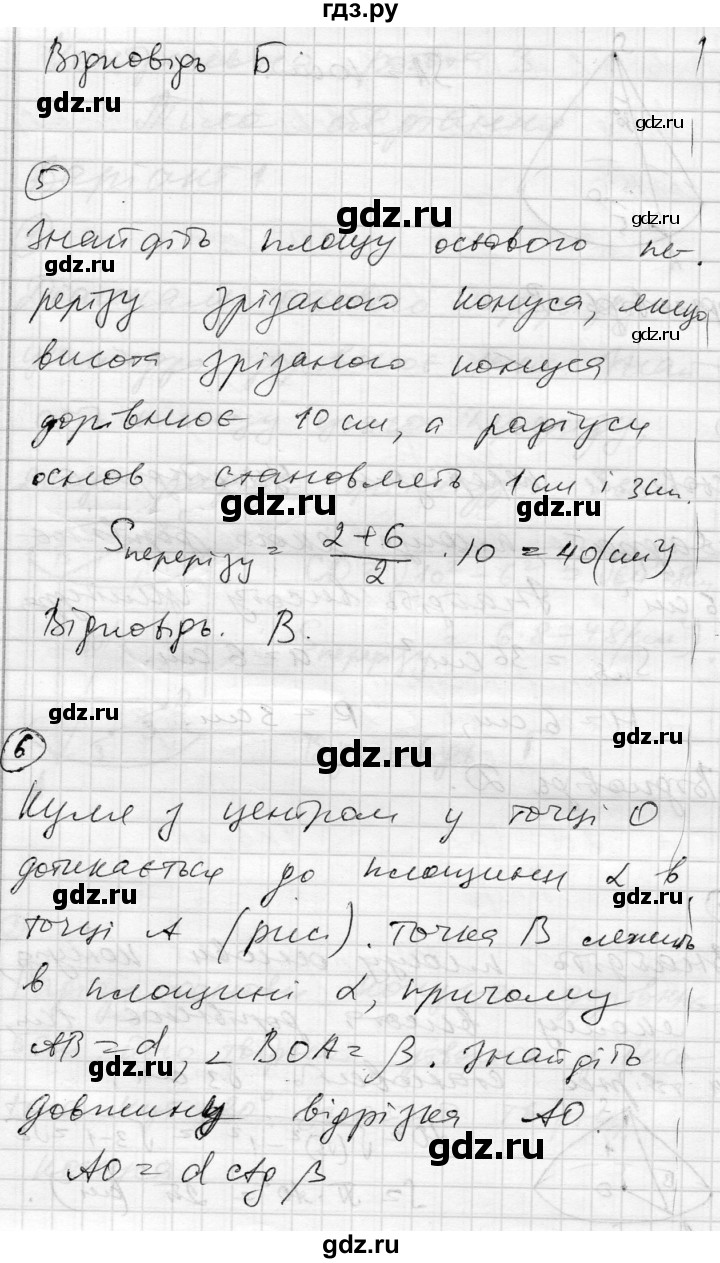 гдз.ру
Відповідь Б
gdz.ru
gdz.ru
5
gdz.ru
Знайдіть площу осьового пе-
gdz.ru
gdz.ru
рерізу зрізаного конуса, якщо
gdz.ru
висота зрізаного конуса
дорівнює 10 см, а радіуси
основ становлять 1 см і 3 см.
gdz.ru
gdz.ru
Sперерізу = (2+6)/2 · 10 = 40 (см²)
Відповідь. В.
gdz.ru
gdz.ru
6
gdz.ru
Куля з центром у точці О
дотикається до площини α в
gdz.ru
gdz.ru
точці А (рис). Точка В лежить
в площині α, причому
АВ = d, ∠ВОА = β. Знайдіть
gdz.ru
gdz.ru
довжину відрізка АО.
gdz.ru
АО = d ctg β
gdz.ru